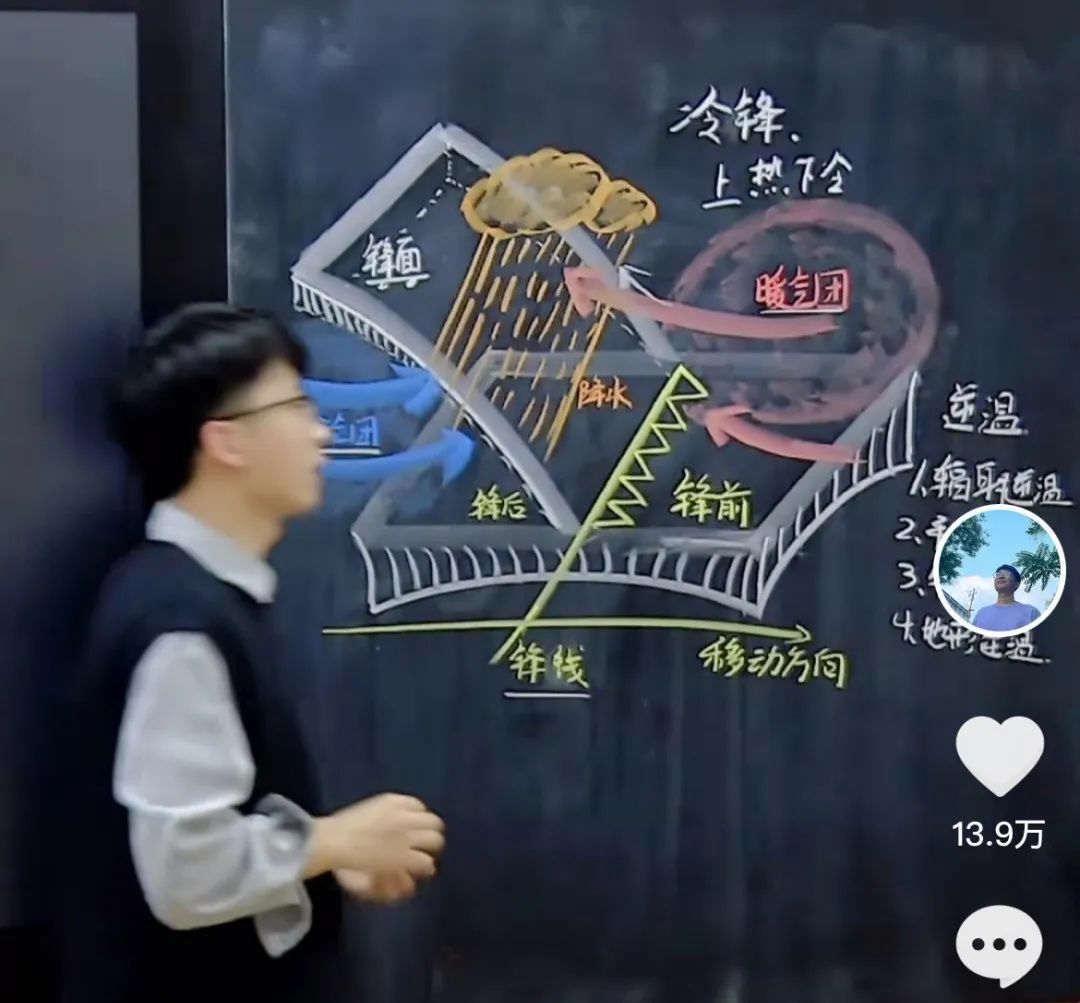 冷锋、
上热下冷
锋面
暖气团
降水
气团
逆温
1.辐射逆温
锋后
锋前
2.
3.
4.地形逆温.
锋线
移动方向
13.9万